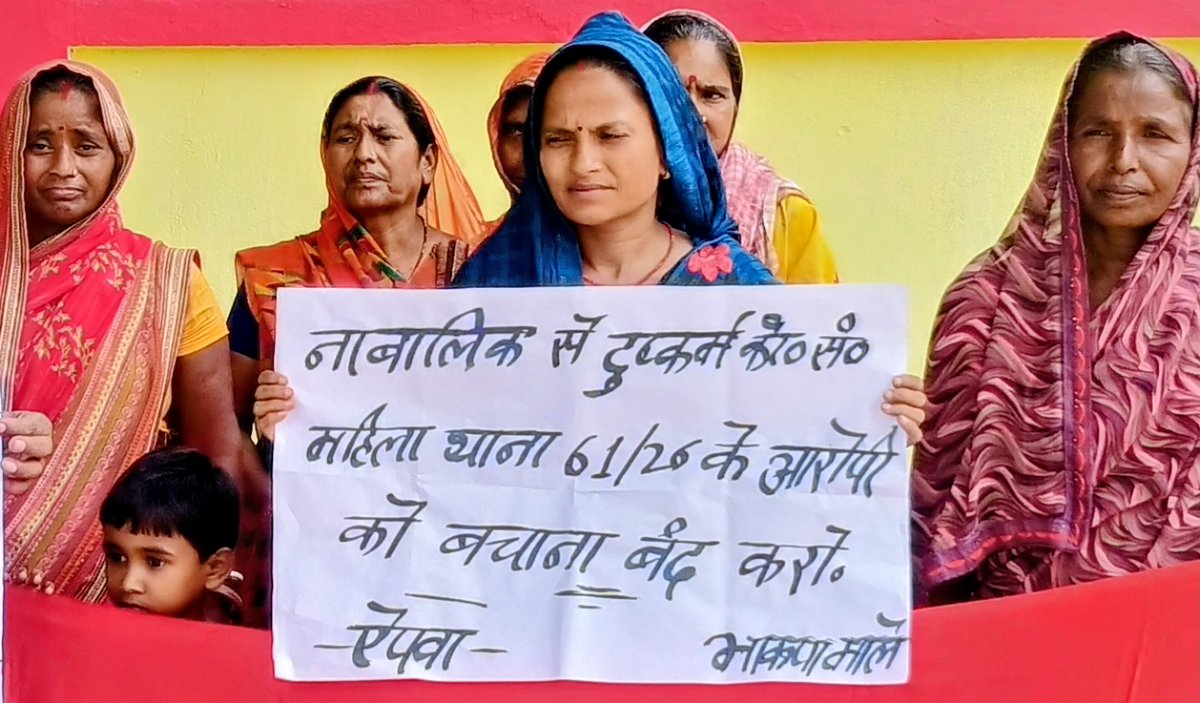 नाबालिक से दुष्कर्म कां० सं०
महिला थाना 61/26 के आरोपी
को बचाना बंद करो.
-ऐपवा- भाकपा माले